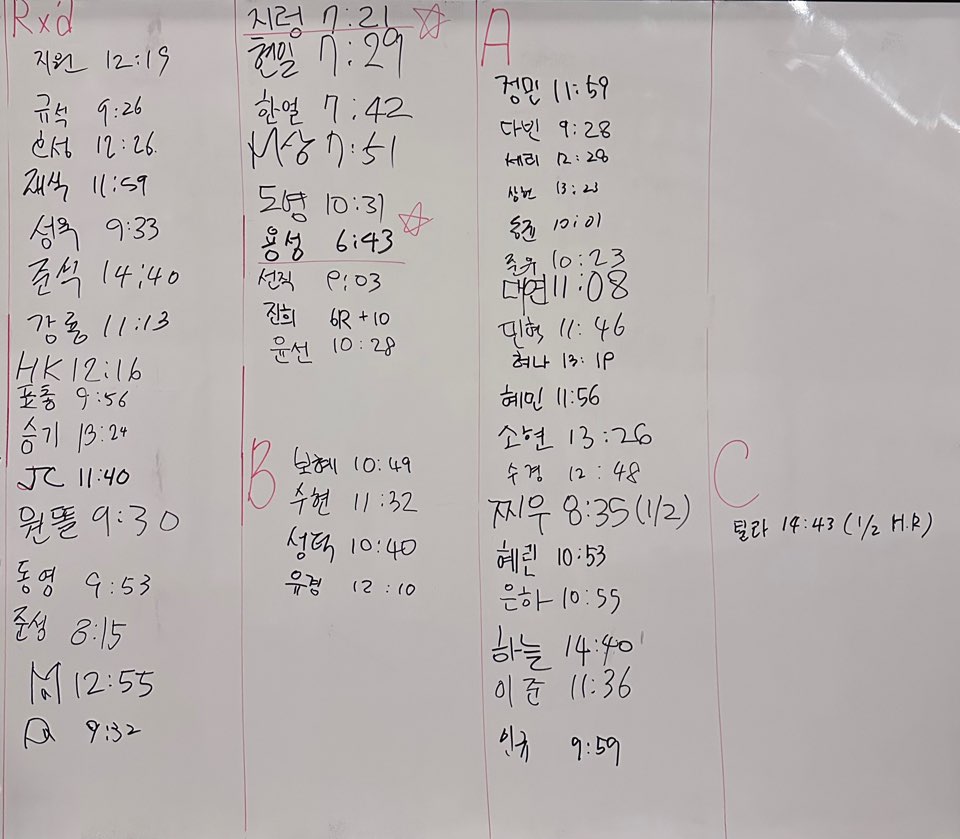 Rx'd
지원 12:19
규석 9:26
인성 12:26
재식 11:59
성욱 9:33
준석 14:40
강룡 11:13
HK 12:16
표총 9:56
승기 13:24
JC 11:40
원똘 9:30
동영 9:53
준성 8:15
12:55
9:32
지렁 7:21
현일 7:29
한열 7:42
M상 7:51
도병 10:31
용성 6:43
선직 9:03
진희 6R+10
윤선 10:28
B
보혜 10:49
수현 11:32
성덕 10:40
유경 12:10
A
정민 11:59
다빈 9:28
세리 12:28
상현 13:23
10:01
준유 10:23
대연 11:08
민혁 11:46
혀나 13:19
혜민 11:56
소현 13:26
수경 12:48
찌우 8:35 (1/2)
혜린 10:53
은하 10:55
하늘 14:40
이준 11:36
인규 9:59
C
틸라 14:43 (1/2 H.R)